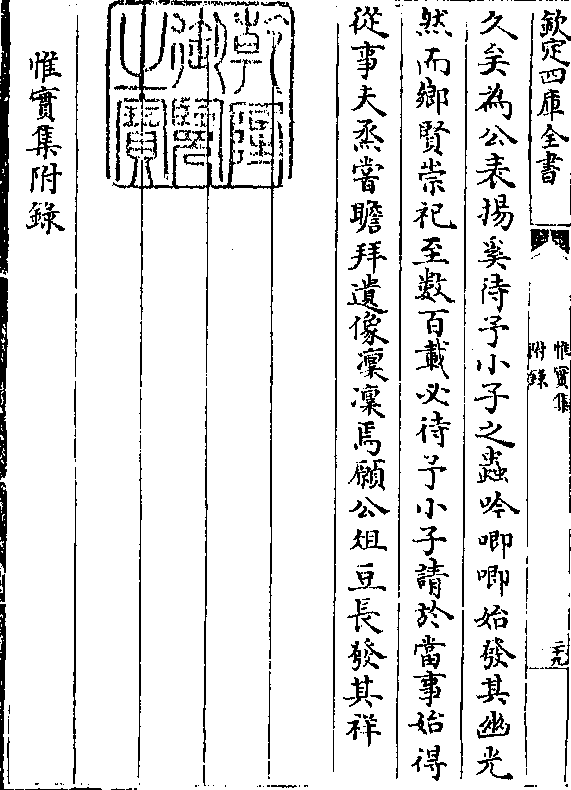 欽定四庫全書
惟實集
附錄
二十九
久矣為公表揚奚待予小子之蟲吟唧唧始發其幽光
然而鄉賢崇祀至數百載必待予小子請於當事始得
從事夫烝嘗瞻拜遺像凜凜焉願公俎豆長發其祥
乾隆御覽之寶
惟實集附錄